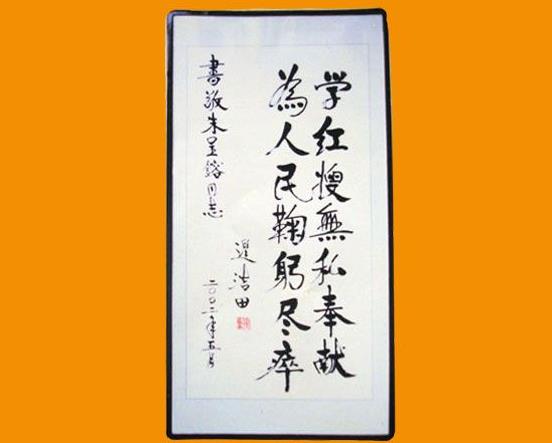 学红嫂無私奉献
為人民鞠躬尽瘁
遲浩田
二〇〇二年五月
書敬朱呈镕同志